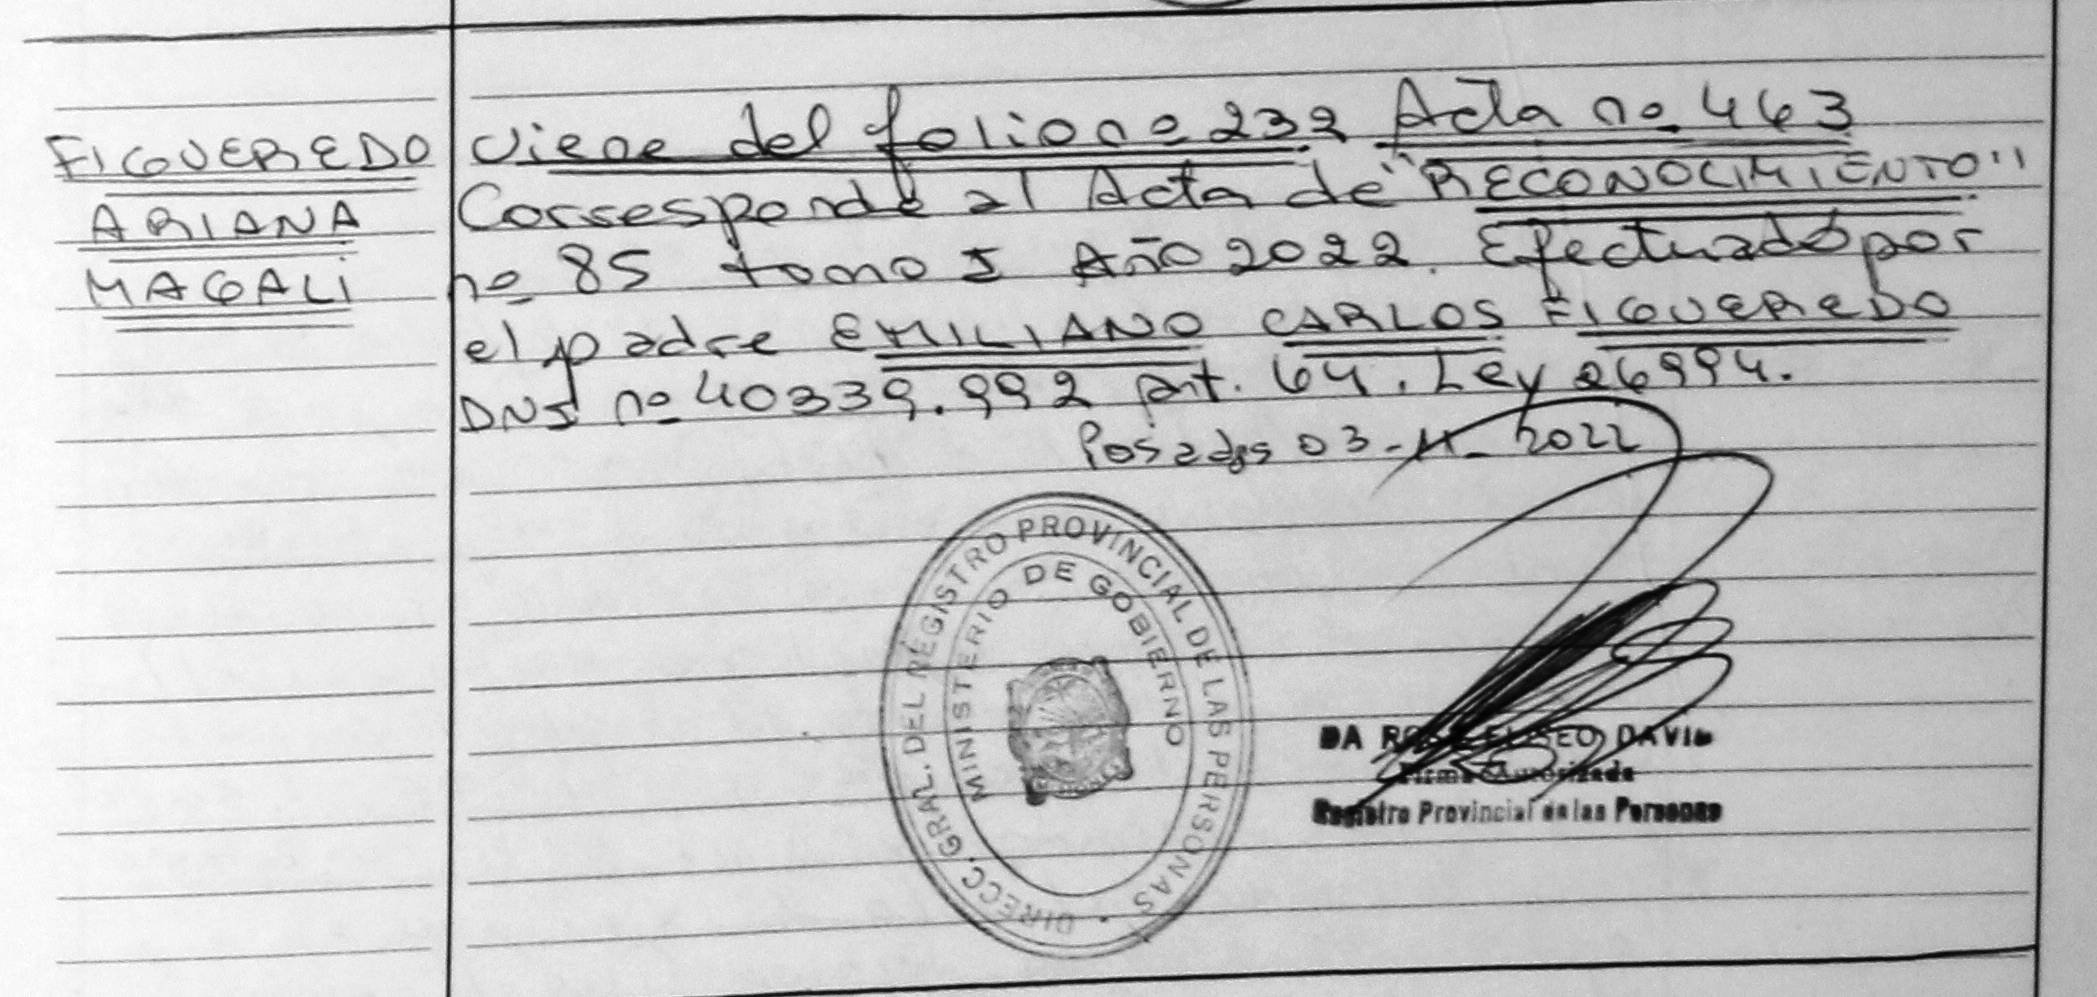 FIGUEREDO
ARIANA
MAGALI
Viene del folio nº 232 Acta nº 463
Corresponde al Acta de "RECONOCIMIENTO"
nº 85 tomo I Año 2022. Efectuado por
el padre EMILIANO CARLOS FIGUEREDO
DNI nº 40339.992 Art. 64. Ley 26994.
Posadas 03-11-2022
DIRECC. GRAL. DEL REGISTRO PROVINCIAL DE LAS PERSONAS
MINISTERIO DE GOBIERNO
DA ROSA ELISEO DAVID
Firma Autorizada
Registro Provincial de las Personas